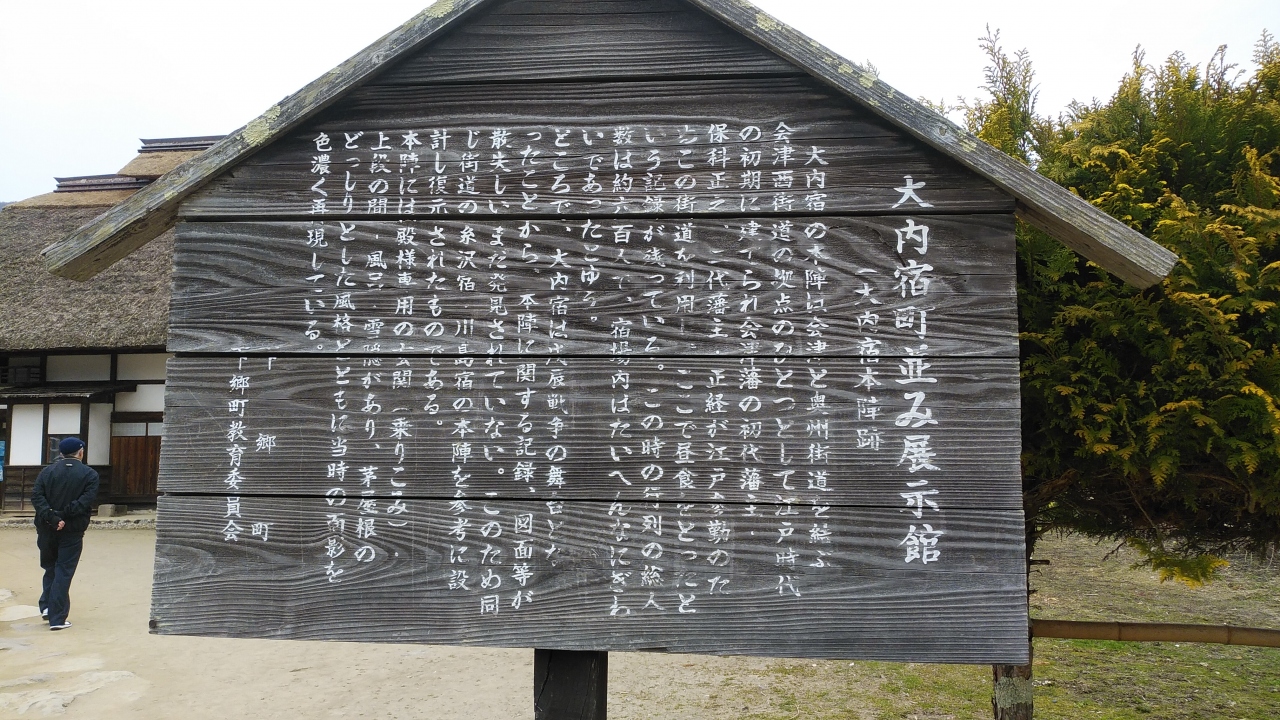 大内宿町並み展示館
(大内宿本陣跡)
大内宿の本陣は会津と奥州街道を結ぶ
会津西街道の拠点のひとつとして江戸時代
の初期に建てられ会津藩の初代藩主・
保科正之、二代藩主・正経が江戸参勤のた
めこの街道を利用し、ここで昼食をとったと
いう記録が残っている。この時の行列の総人
数は約六百人で、宿場内はたいへんなにぎわ
いであったとゆう。
ところで、大内宿は戊辰戦争の舞台とな
ったことから、本陣に関する記録、図面等が
散失しいまだ発見されていない。このため同
じ街道の糸沢宿・川島宿の本陣を参考に設
計し復元されたものである。
本陣には殿様専用の玄関(乗りこみ)・
上段の間・風呂・雪隠があり、茅屋根の
どっしりとした風格とともに当時の面影を
色濃く再現している。
下郷町
下郷町教育委員会